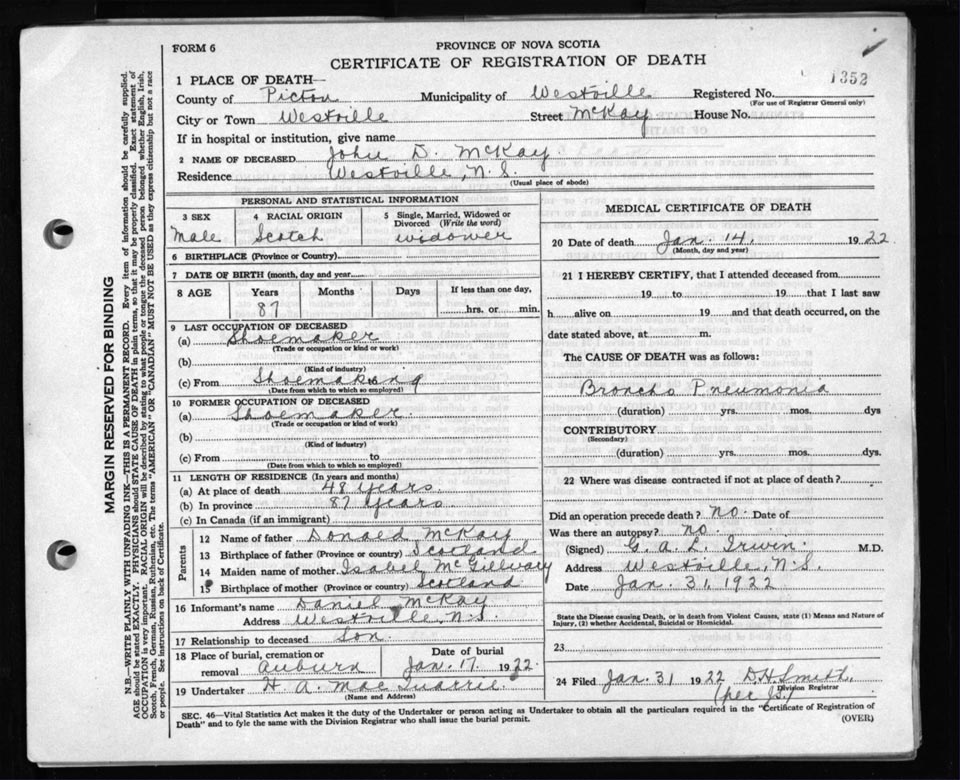 FORM 6
PROVINCE OF NOVA SCOTIA
CERTIFICATE OF REGISTRATION OF DEATH
1352
1 PLACE OF DEATH—
County of Pictou Municipality of Westville Registered No.
(For use of Registrar General only)
City or Town Westville Street McKay House No.
If in hospital or institution, give name
2 NAME OF DECEASED John D. McKay
Residence Westville, N.S.
(Usual place of abode)
PERSONAL AND STATISTICAL INFORMATION
3 SEX 4 RACIAL ORIGIN 5 Single, Married, Widowed or Divorced (Write the word)
Male Scotch widower
6 BIRTHPLACE (Province or Country)
7 DATE OF BIRTH (month, day and year
8 AGE Years Months Days If less than one day,
87 hrs. or min.
9 LAST OCCUPATION OF DECEASED
(a) Shoemaker
(Trade or occupation or kind or work)
(b)
(Kind of industry)
(c) From Shoemaking
(Date from which to which so employed)
10 FORMER OCCUPATION OF DECEASED
(a) Shoemaker
(Trade or occupation or kind of work)
(b)
(Kind of industry)
(c) From to
(Date from which to which so employed)
11 LENGTH OF RESIDENCE (In years and months)
(a) At place of death 48 years.
(b) In province 87 years.
(c) In Canada (if an immigrant)
Parents
12 Name of father Donald McKay
13 Birthplace of father (Province or country) Scotland
14 Maiden name of mother Isabel McGillvary
15 Birthplace of mother (Province or country) Scotland
16 Informant's name Daniel McKay
Address Westville, N.S.
17 Relationship to deceased Son.
18 Place of burial, cremation or removal Auburn Date of burial Jan. 17. 1922.
19 Undertaker H. A. MacQuarrie.
(Name and Address)
MEDICAL CERTIFICATE OF DEATH
20 Date of death Jan. 14. 1922.
(Month, day and year)
21 I HEREBY CERTIFY, that I attended deceased from
19 to 19 that I last saw
h alive on 19 and that death occurred, on the
date stated above, at m.
The CAUSE OF DEATH was as follows:
Broncho Pneumonia
(duration) yrs. mos. dys
CONTRIBUTORY
(Secondary)
(duration) yrs. mos. dys.
22 Where was disease contracted if not at place of death?
Did an operation precede death? no. Date of
Was there an autopsy? no.
(Signed) G. A. L. Irwin. M.D.
Address Westville, N.S.
Date Jan. 31, 1922
State the Disease causing Death, or in death from Violent Causes, state (1) Means and Nature of
Injury, (2) whether Accidental, Suicidal or Homicidal.
23
24 Filed Jan. 31 1922 D.H. Smith,
Division Registrar
SEC. 46—Vital Statistics Act makes it the duty of the Undertaker or person acting as Undertaker to obtain all the particulars required in the "Certificate of Registration of
Death" and to fyle the same with the Division Registrar who shall issue the burial permit.
(OVER)
MARGIN RESERVED FOR BINDING
N.B.—WRITE PLAINLY WITH UNFADING INK—THIS IS A PERMANENT RECORD. Every item of information should be carefully supplied.
AGE should be stated EXACTLY. PHYSICIANS should STATE CAUSE OF DEATH in plain terms, so that it may be properly classified. Exact statement of
OCCUPATION is very important. RACIAL ORIGIN will be described by stating to what people or tongue the deceased person belonged whether English, Irish,
Scotch, French, German, Russian, Ruthenian, etc. The terms "AMERICAN" OR "CANADIAN" MUST NOT BE USED as they express citizenship but not a race
or people. See instructions on back of Certificate.